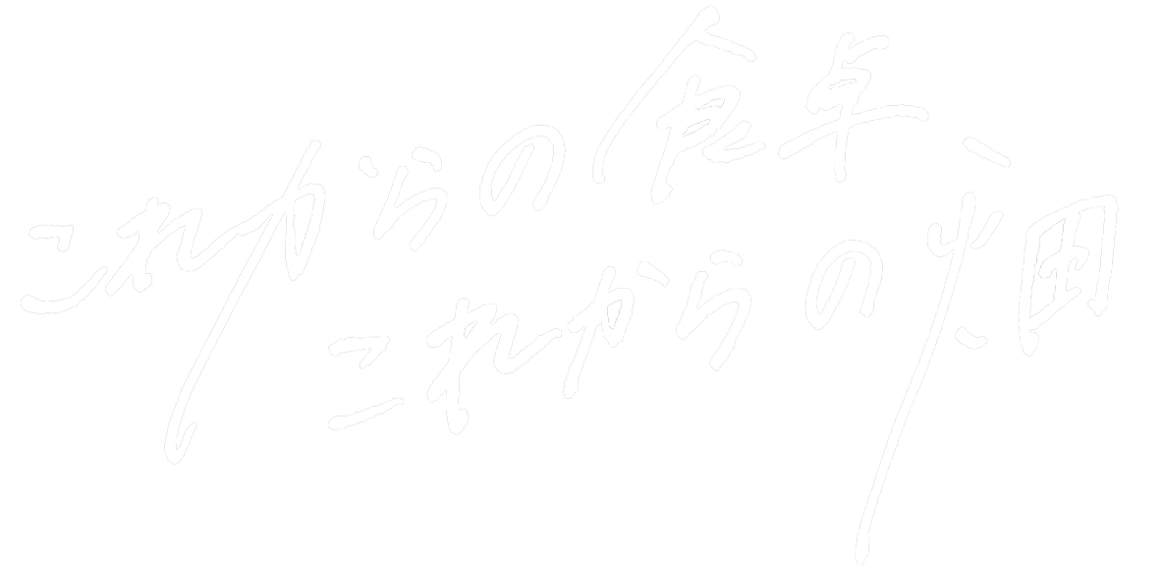 これからの食卓、
これからの畑